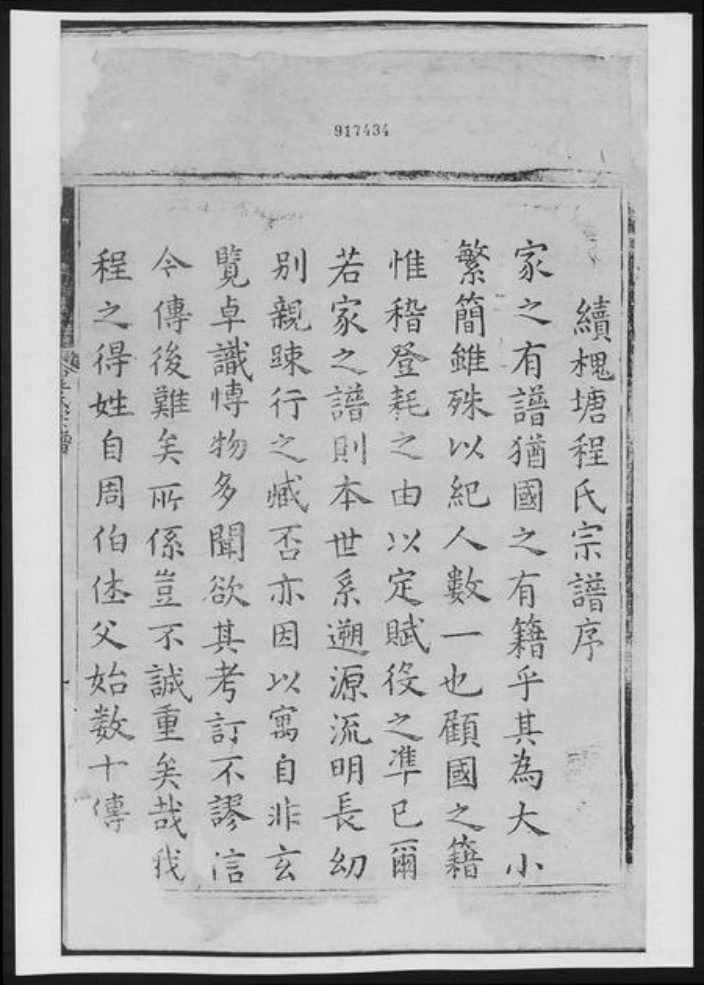 917434
續槐塘程氏宗譜序
家之有譜猶國之有籍乎其為大小
繁簡雖殊以紀人數一也顧國之籍
惟稽登耗之由以定賦役之準已爾
若家之譜則本世系遡源流明長幼
别親踈行之臧否亦因以寓自非玄
覽卓識愽物多聞欲其考訂不謬信
今傳後難矣所係豈不誠重矣哉我
程之得姓自周伯休父始數十傳